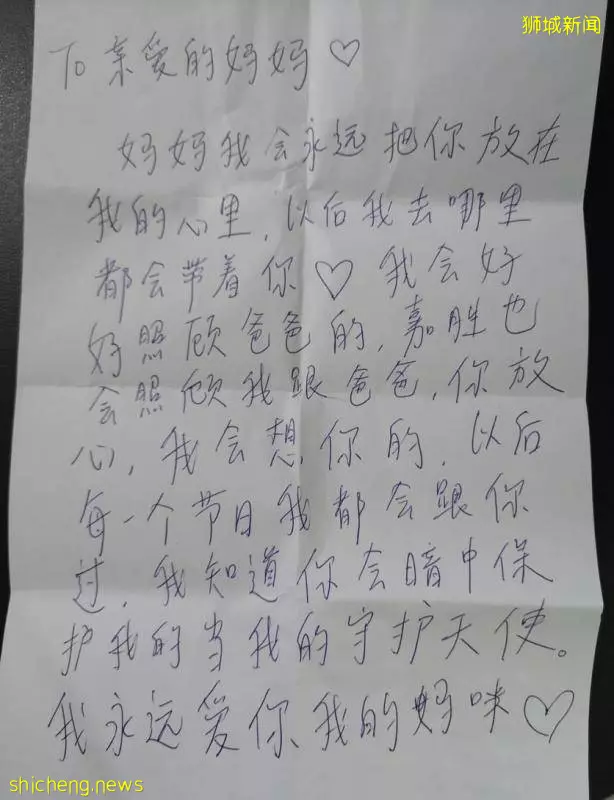 狮城新闻
To 亲爱的妈妈♡
妈妈我会永远把你放在
我的心里,以后我去哪里
都会带着你♡ 我会好
好照顾爸爸的,嘉胜也
会照顾我跟爸爸,你放
心,我会想你的,以后
每一个节日我都会跟你
过,我知道你会暗中保
护我的当我的守护天使。
我永远爱你、我的妈咪♡
shicheng.news